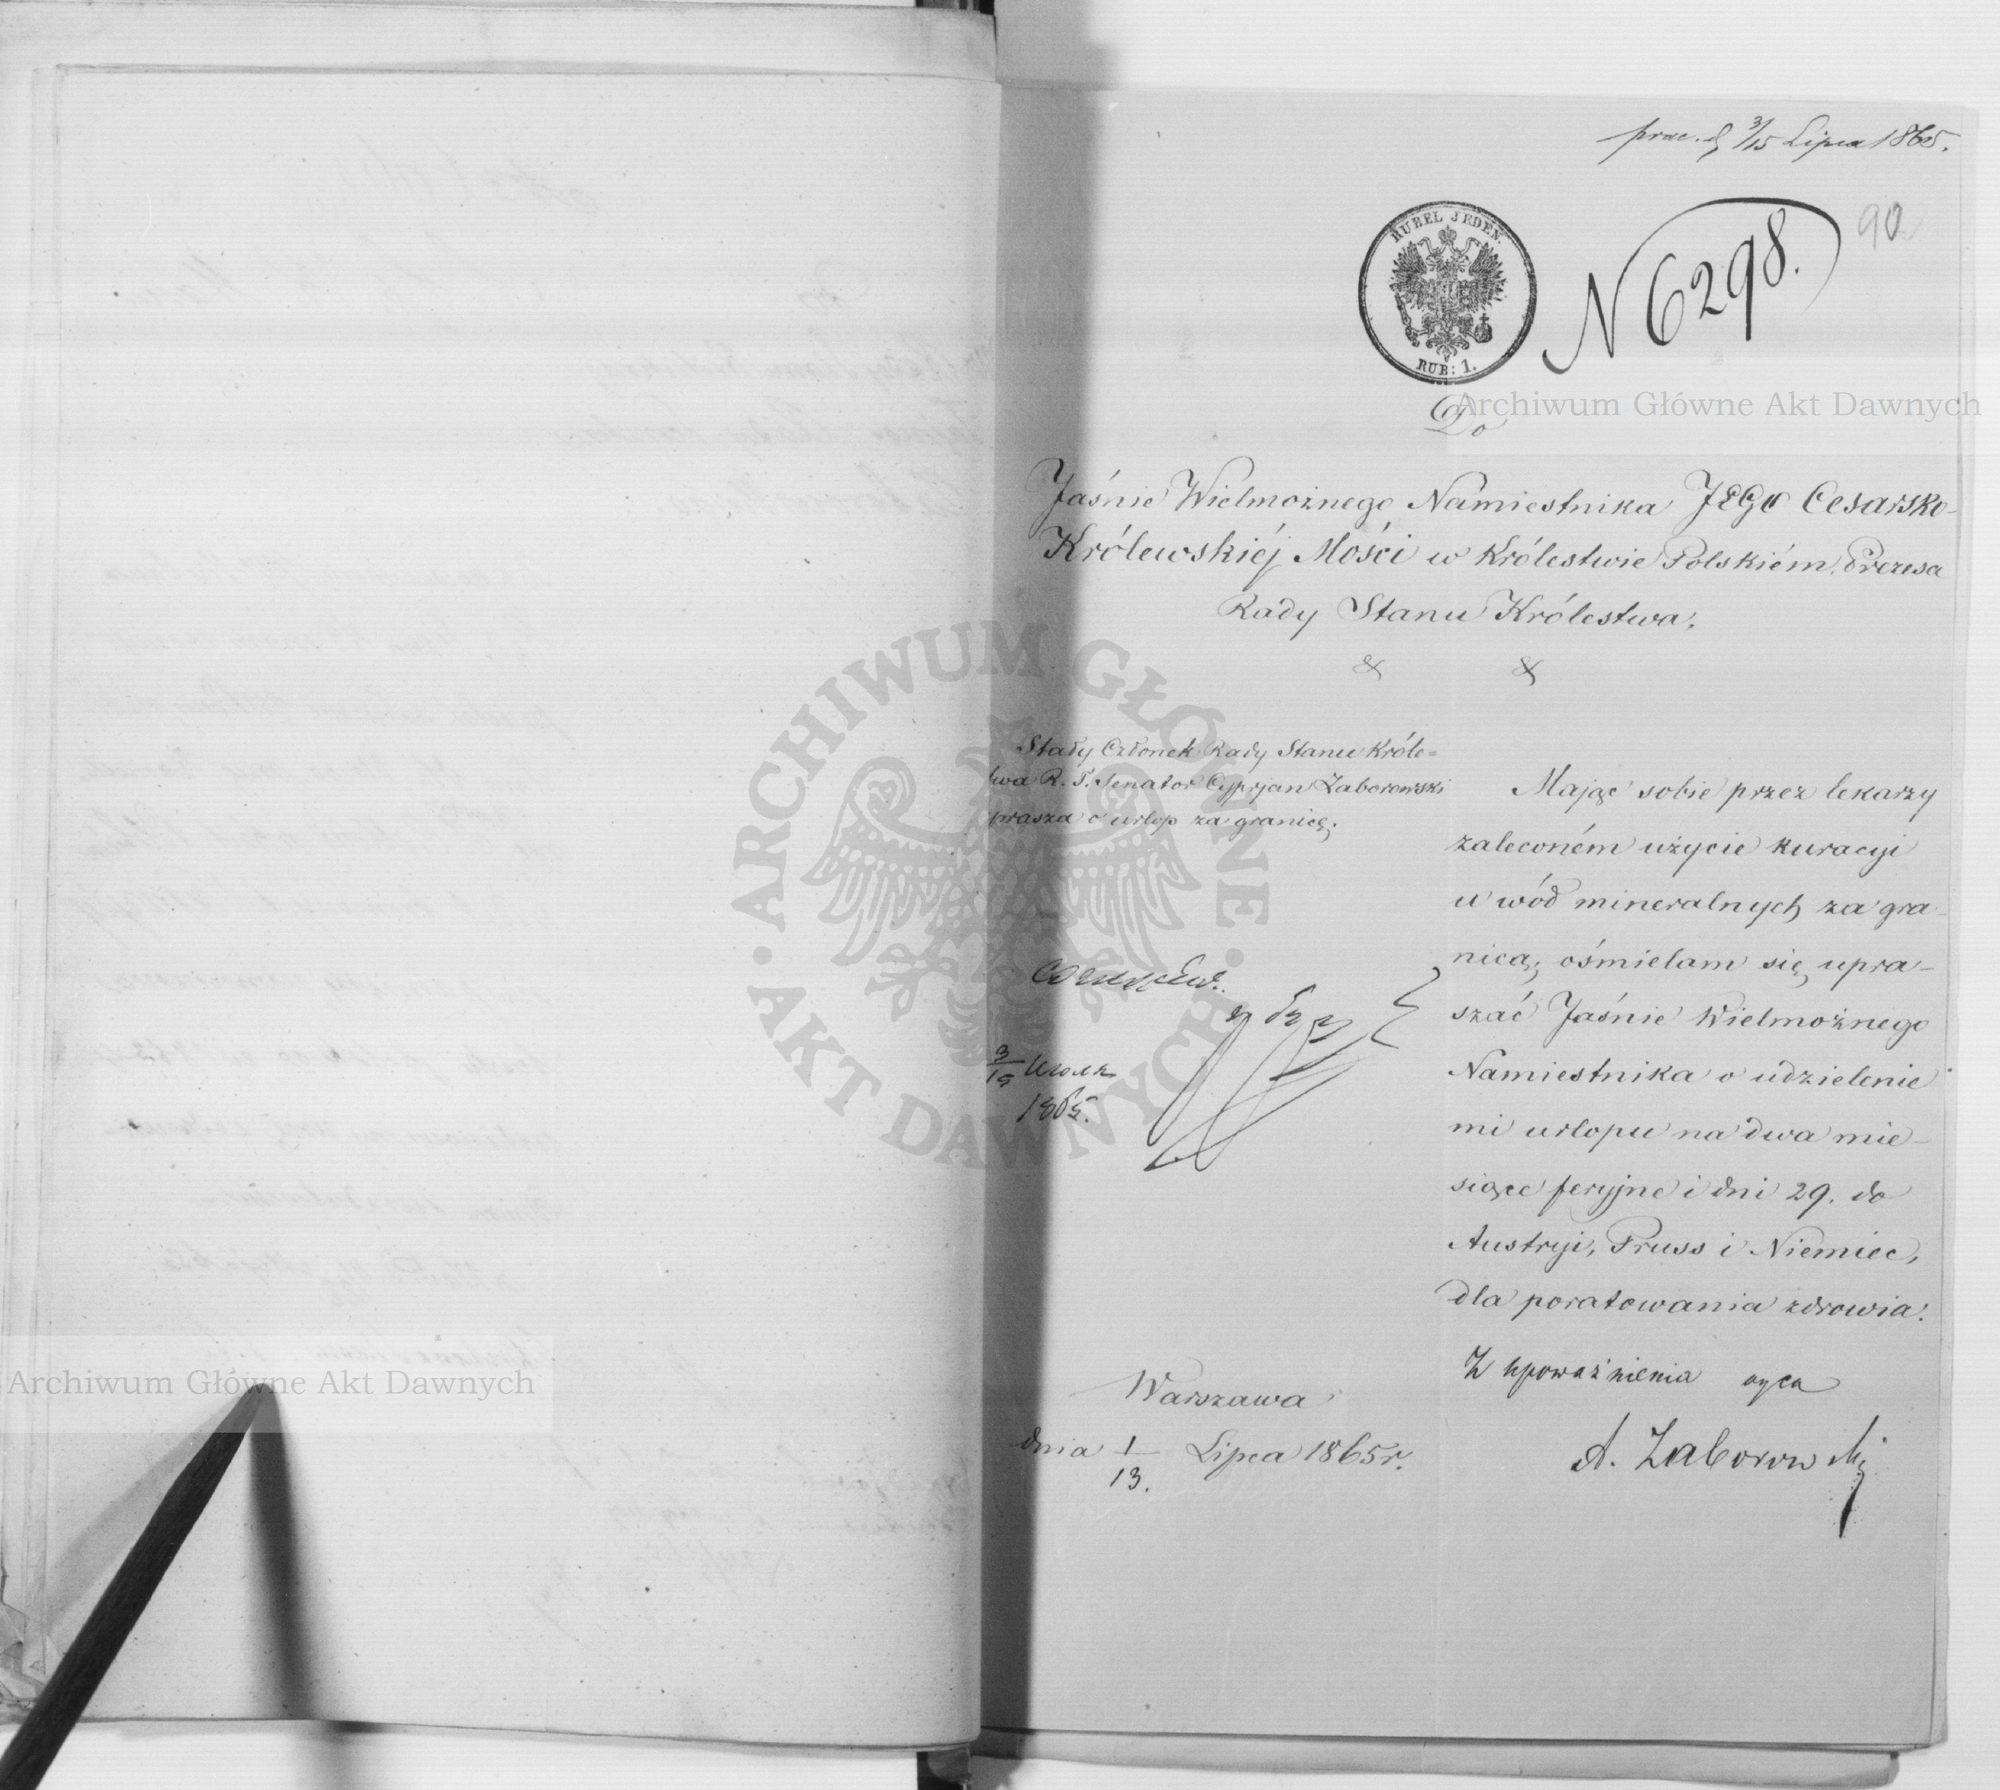 d. 3/15 Lipca 1865.
RUBEL JEDEN.
RUB: 1.
N 6298.
90
Archiwum Główne Akt Dawnych
Do
Jaśnie Wielmożnego Namiestnika JEGO Cesarsko-
Królewskiéj Mości w Królestwie Polskiém, Prezesa
Rady Stanu Królestwa.
& &
Stały Członek Rady Stanu Króle=
twa R. T. Senator Cyprjan Zaborowski
prasza o urlop za granicę.
Mając sobie przez lekarzy
zaleconém użycie kuracyi
u wód mineralnych za gra-
nicą; ośmielam się upra-
szać Jaśnie Wielmożnego
Namiestnika o udzielenie
mi urlopu na dwa mie-
siące feryjne i dni 29. do
Austryi, Pruss i Niemiec,
dla poratowania zdrowia.
3/15 Июля
1865.
Z upoważnienia ojca
A. Zaborowski
Warszawa
dnia 1/13. Lipca 1865 r.
ARCHIWUM GŁÓWNE · AKT DAWNYCH ·
Archiwum Główne Akt Dawnych